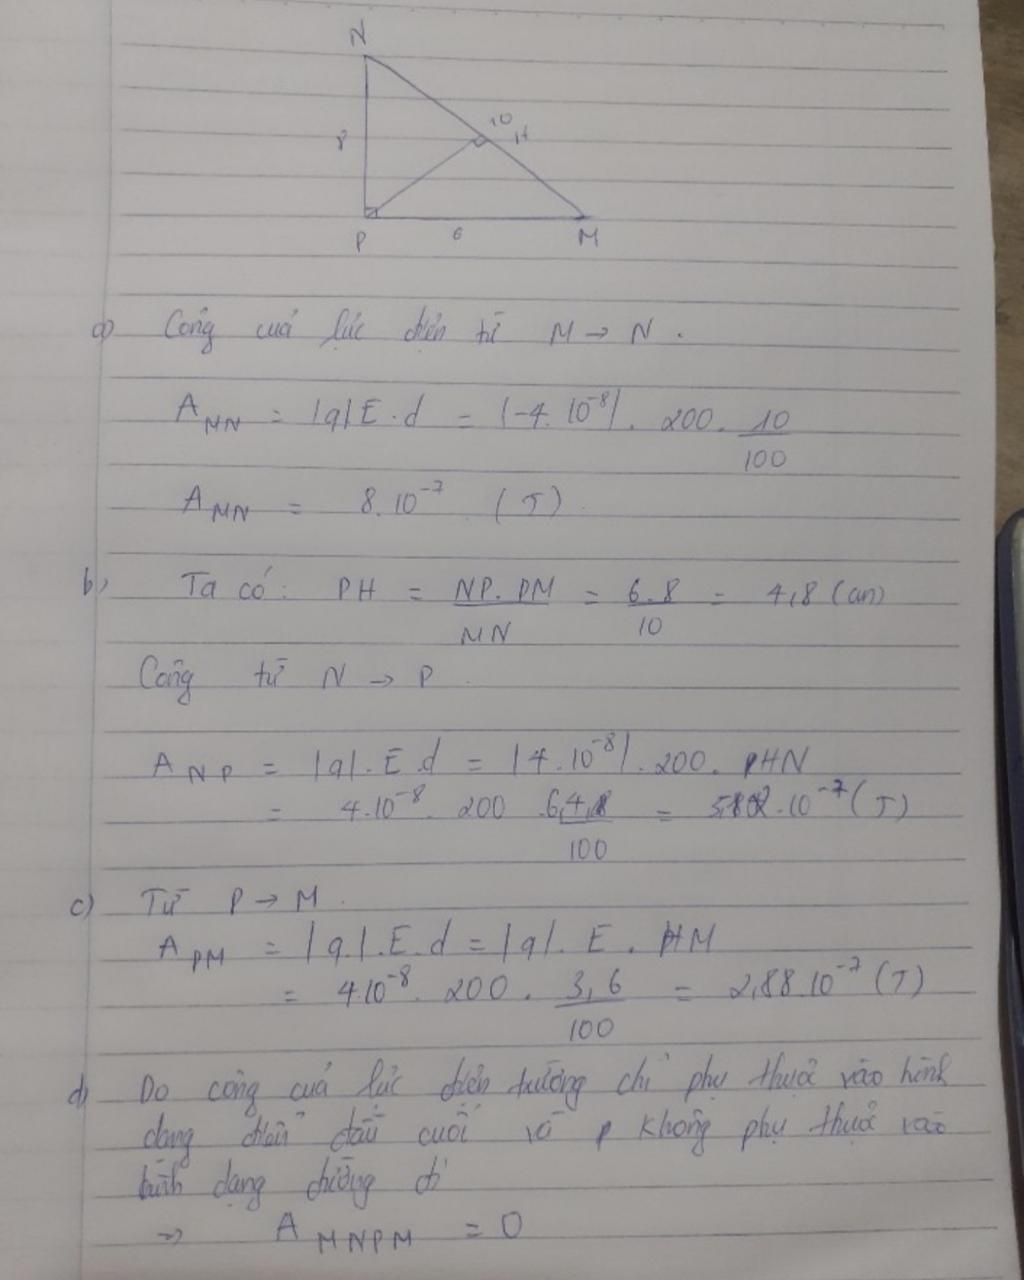 N
10
8
H
P
6
M
a) Công của lực điện từ M → N.
A_MN = |q|E.d = |-4.10^-8|. 200. 10/100
A_MN = 8.10^-7 (J)
b, Ta có: PH = NP.PM/MN = 6.8/10 = 4,8 (cm)
Công từ N → P.
A_NP = |q|.E.d = |4.10^-8|.200. HN
= 4.10^-8. 200 .6,4/100 = 5,12.10^-7 (J)
c) Từ P → M.
A_PM = |q|.E.d = |q|. E. HM
= 4.10^-8. 200. 3,6/100 = 2,88.10^-7 (J)
d) Do công của lực điện trường chỉ phụ thuộc vào hình
dạng điểm đầu cuối và không phụ thuộc vào
hình dạng đường đi
=> A_MNPM = 0